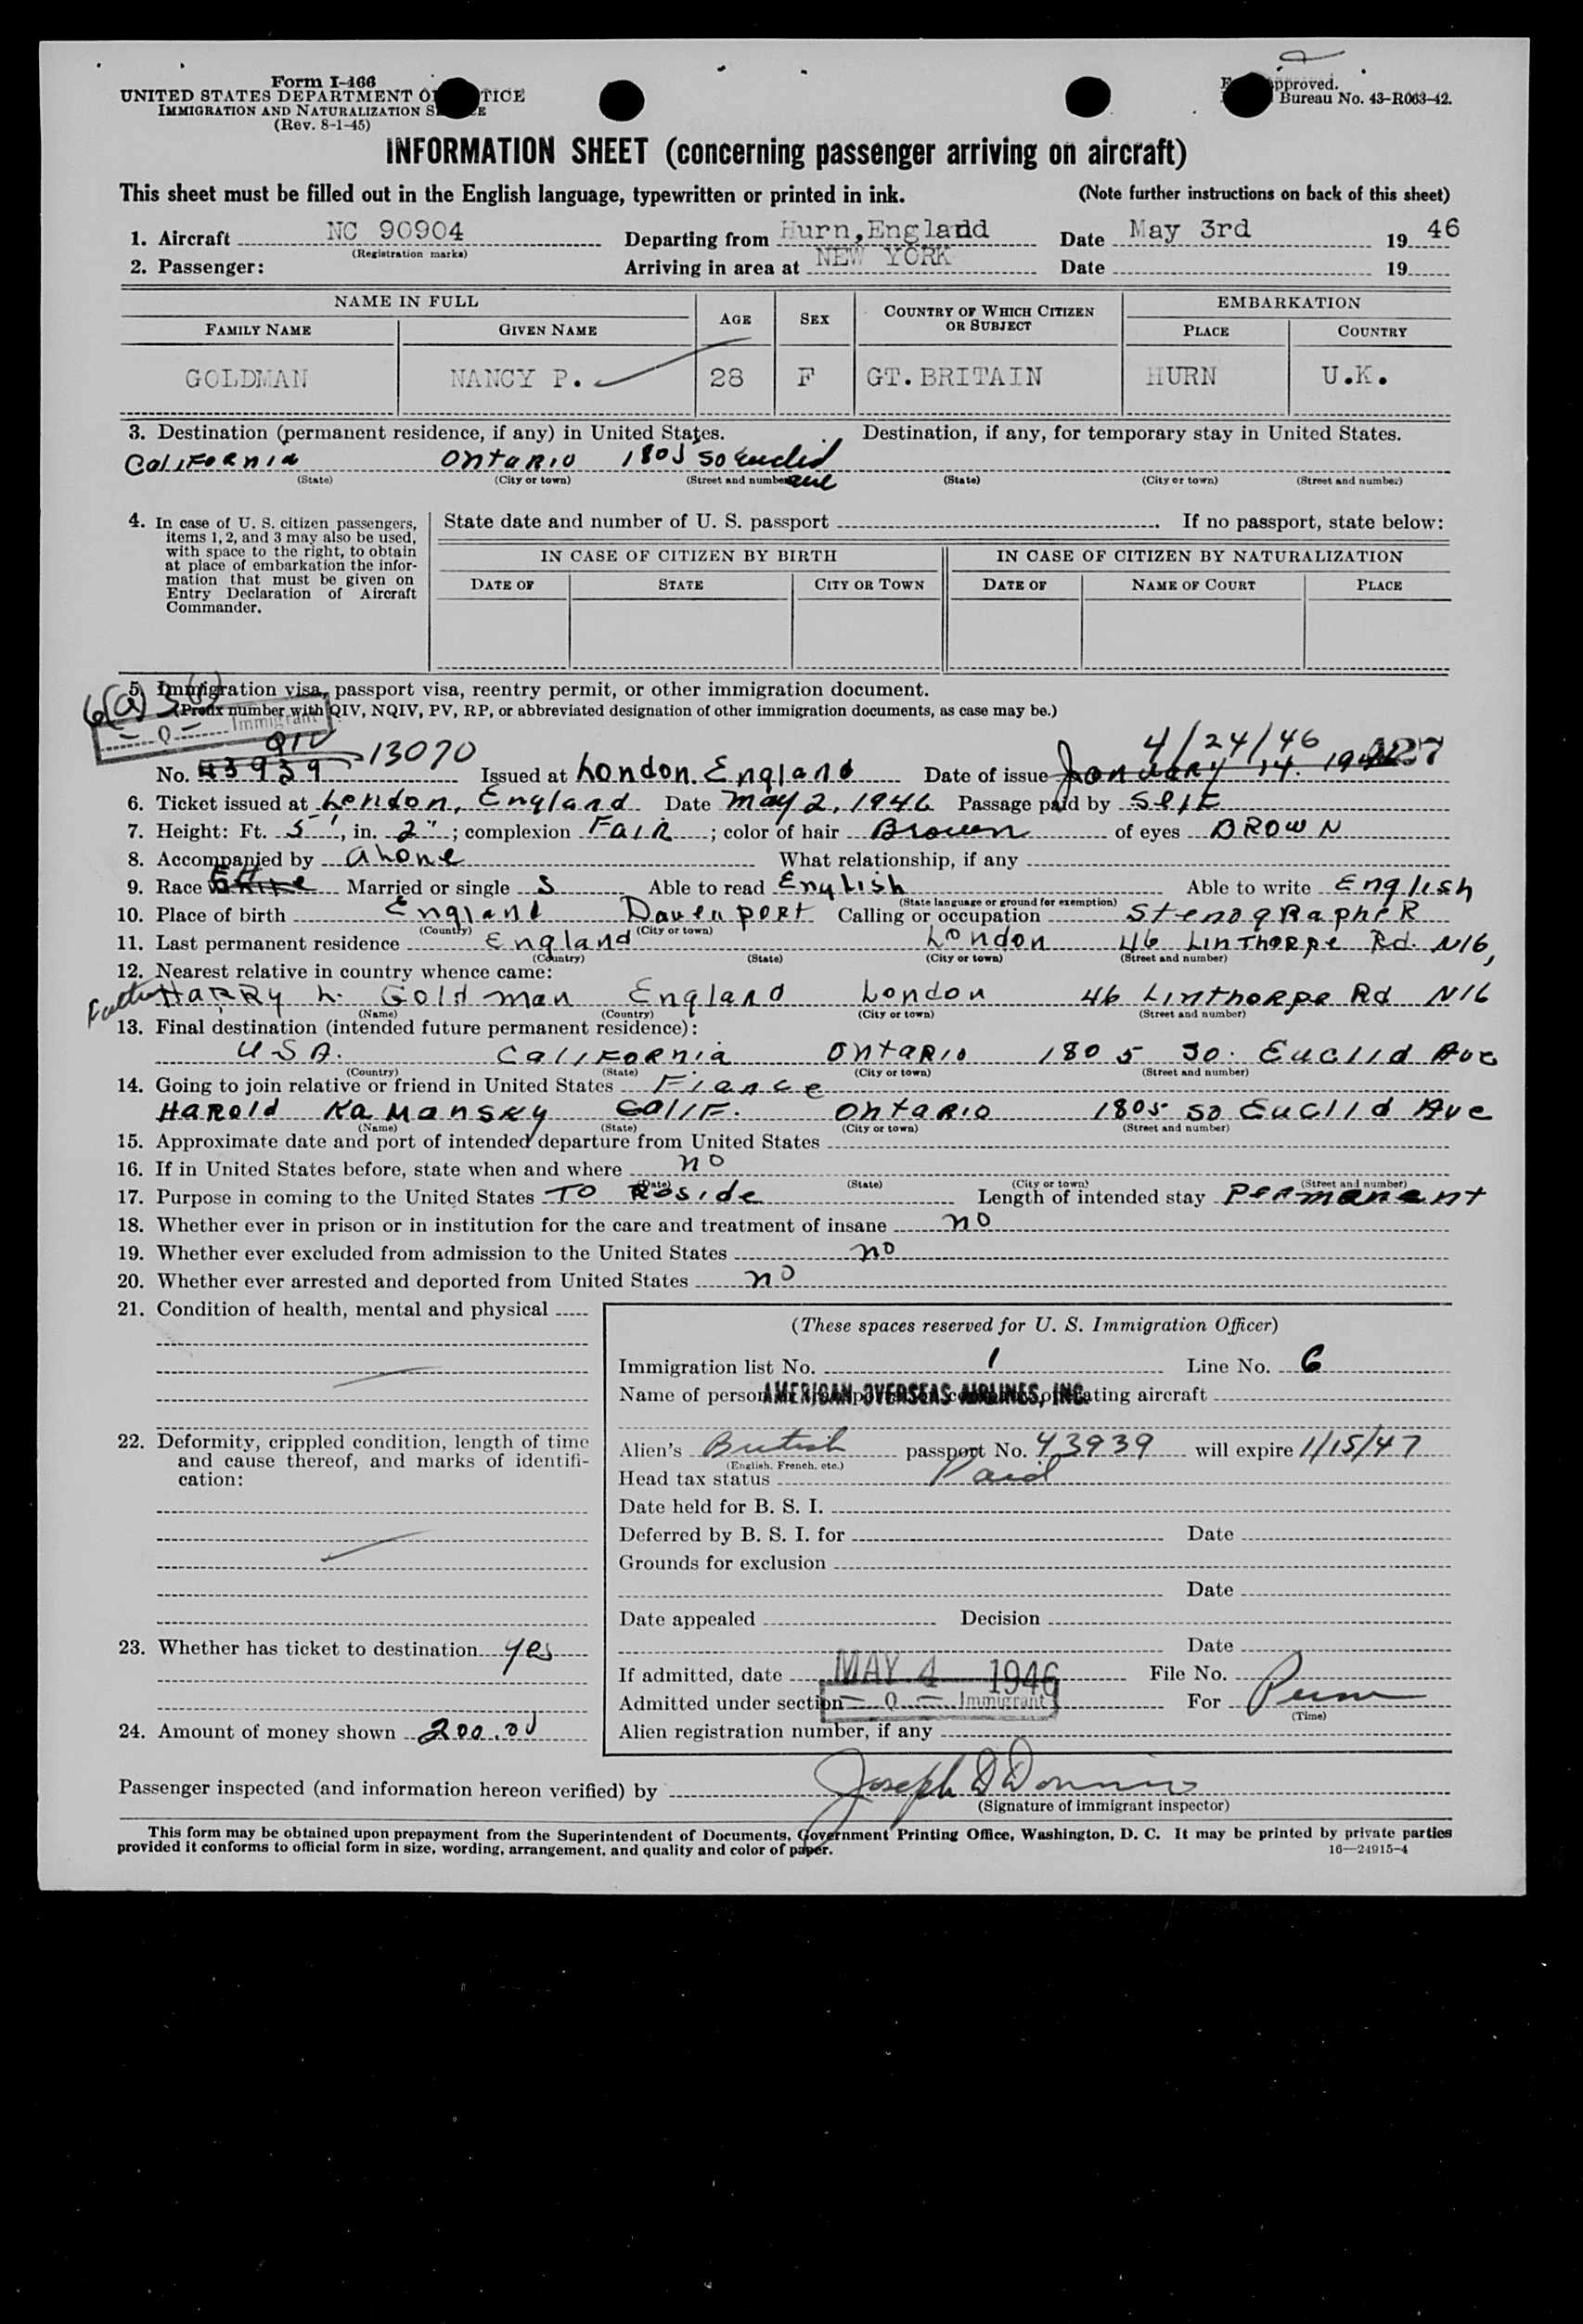 Form I-466
UNITED STATES DEPARTMENT OF JUSTICE
IMMIGRATION AND NATURALIZATION SERVICE
(Rev. 8-1-45)
Approved.
Bureau No. 43-R063-42.
INFORMATION SHEET (concerning passenger arriving on aircraft)
This sheet must be filled out in the English language, typewritten or printed in ink. (Note further instructions on back of this sheet)
1. Aircraft NC 90904 Departing from Hurn, England Date May 3rd 19 46
(Registration marks)
2. Passenger: Arriving in area at NEW YORK Date 19
NAME IN FULL AGE SEX COUNTRY OF WHICH CITIZEN OR SUBJECT EMBARKATION
FAMILY NAME GIVEN NAME PLACE COUNTRY
GOLDMAN NANCY P. 28 F GT.BRITAIN HURN U.K.
3. Destination (permanent residence, if any) in United States. Destination, if any, for temporary stay in United States.
California Ontario 1805 So Euclid ave
(State) (City or town) (Street and number) (State) (City or town) (Street and number)
4. In case of U. S. citizen passengers, items 1, 2, and 3 may also be used, with space to the right, to obtain at place of embarkation the information that must be given on Entry Declaration of Aircraft Commander.
State date and number of U. S. passport . If no passport, state below:
IN CASE OF CITIZEN BY BIRTH IN CASE OF CITIZEN BY NATURALIZATION
DATE OF STATE CITY OR TOWN DATE OF NAME OF COURT PLACE
5. Immigration visa, passport visa, reentry permit, or other immigration document.
(Prefix number with QIV, NQIV, PV, RP, or abbreviated designation of other immigration documents, as case may be.)
Q Immigrant
QIV 4/24/46
No. 43939 13070 Issued at London. England Date of issue January 14. 194 127
6. Ticket issued at London, England Date May 2, 1946 Passage paid by SelF
7. Height: Ft. 5', in. 2"; complexion Fair; color of hair Brown of eyes BROWN
8. Accompanied by Alone What relationship, if any
9. Race White Married or single S Able to read English Able to write English
(State language or ground for exemption)
10. Place of birth England Davenport Calling or occupation StenographeR
(Country) (City or town)
11. Last permanent residence England London 46 LinThorpe Rd. N16,
(Country) (State) (City or town) (Street and number)
12. Nearest relative in country whence came:
Father HaRRy L. Goldman England London 46 Linthorpe Rd N16
(Name) (Country) (City or town) (Street and number)
13. Final destination (intended future permanent residence):
USA. California Ontario 1805 So. Euclid Ave
(Country) (State) (City or town) (Street and number)
14. Going to join relative or friend in United States Fiance
Harold Kamansky Calif. Ontario 1805 So Euclid Ave
(Name) (State) (City or town) (Street and number)
15. Approximate date and port of intended departure from United States
16. If in United States before, state when and where no
(Date) (State) (City or town) (Street and number)
17. Purpose in coming to the United States To Reside Length of intended stay Permanent
18. Whether ever in prison or in institution for the care and treatment of insane no
19. Whether ever excluded from admission to the United States no
20. Whether ever arrested and deported from United States no
21. Condition of health, mental and physical
(These spaces reserved for U. S. Immigration Officer)
Immigration list No. 1 Line No. 6
Name of person operating aircraft
AMERICAN OVERSEAS AIRLINES, INC.
22. Deformity, crippled condition, length of time and cause thereof, and marks of identification:
Alien's British passport No. 43939 will expire 1/15/47
(English, French, etc.)
Head tax status Paid
Date held for B. S. I.
Deferred by B. S. I. for Date
Grounds for exclusion
Date
Date appealed Decision
23. Whether has ticket to destination yes
Date
If admitted, date MAY 4 1946 File No.
Admitted under section Q Immigrant For Perm
(Time)
24. Amount of money shown 200.00
Alien registration number, if any
Passenger inspected (and information hereon verified) by
(Signature of immigrant inspector)
This form may be obtained upon prepayment from the Superintendent of Documents, Government Printing Office, Washington, D. C. It may be printed by private parties
provided it conforms to official form in size, wording, arrangement, and quality and color of paper. 16—24915-4